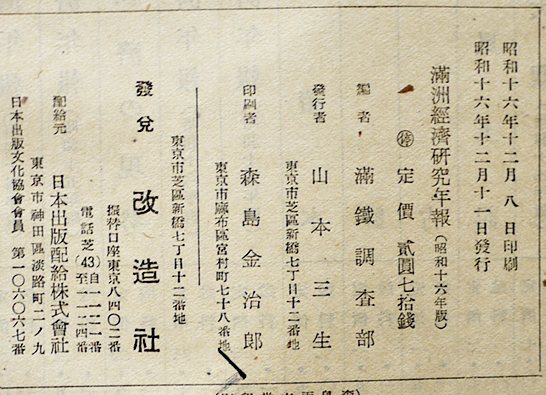 昭和十六年十二月八日印刷
昭和十六年十二月十一日發行
滿洲經濟研究年報（昭和十六年版）
㊡定價貳圓七拾錢
編者 滿鐵調査部
發行者 山本三生
東京市芝區新橋七丁目十二番地
印刷者 森島金治郎
東京市麻布區宮村町七十八番地
東京市芝區新橋七丁目十二番地
發兌 改造社
振替口座東京八四〇二番
電話芝(43)自一一二一番至一一二四番
配給元 日本出版配給株式會社
東京市神田區淡路町二ノ九
日本出版文化協會會員 第一〇六〇六七番